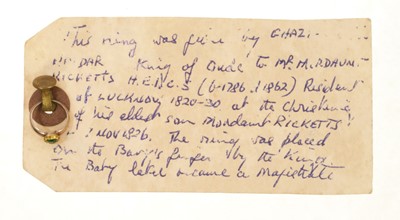 This ring was given by GHAZI-
UD-DAR King of Oude to Mr MORDAUNT
RICKETTS H.E.I.C.S (b-1786. 1862) Resident
of LUCKNOW 1820-30 at the Christening
of his eldest son Mordaunt RICKETTS!
1 NOV 1826. The ring was placed
on the Baby's finger by the King.
The Baby later became a Magistrate